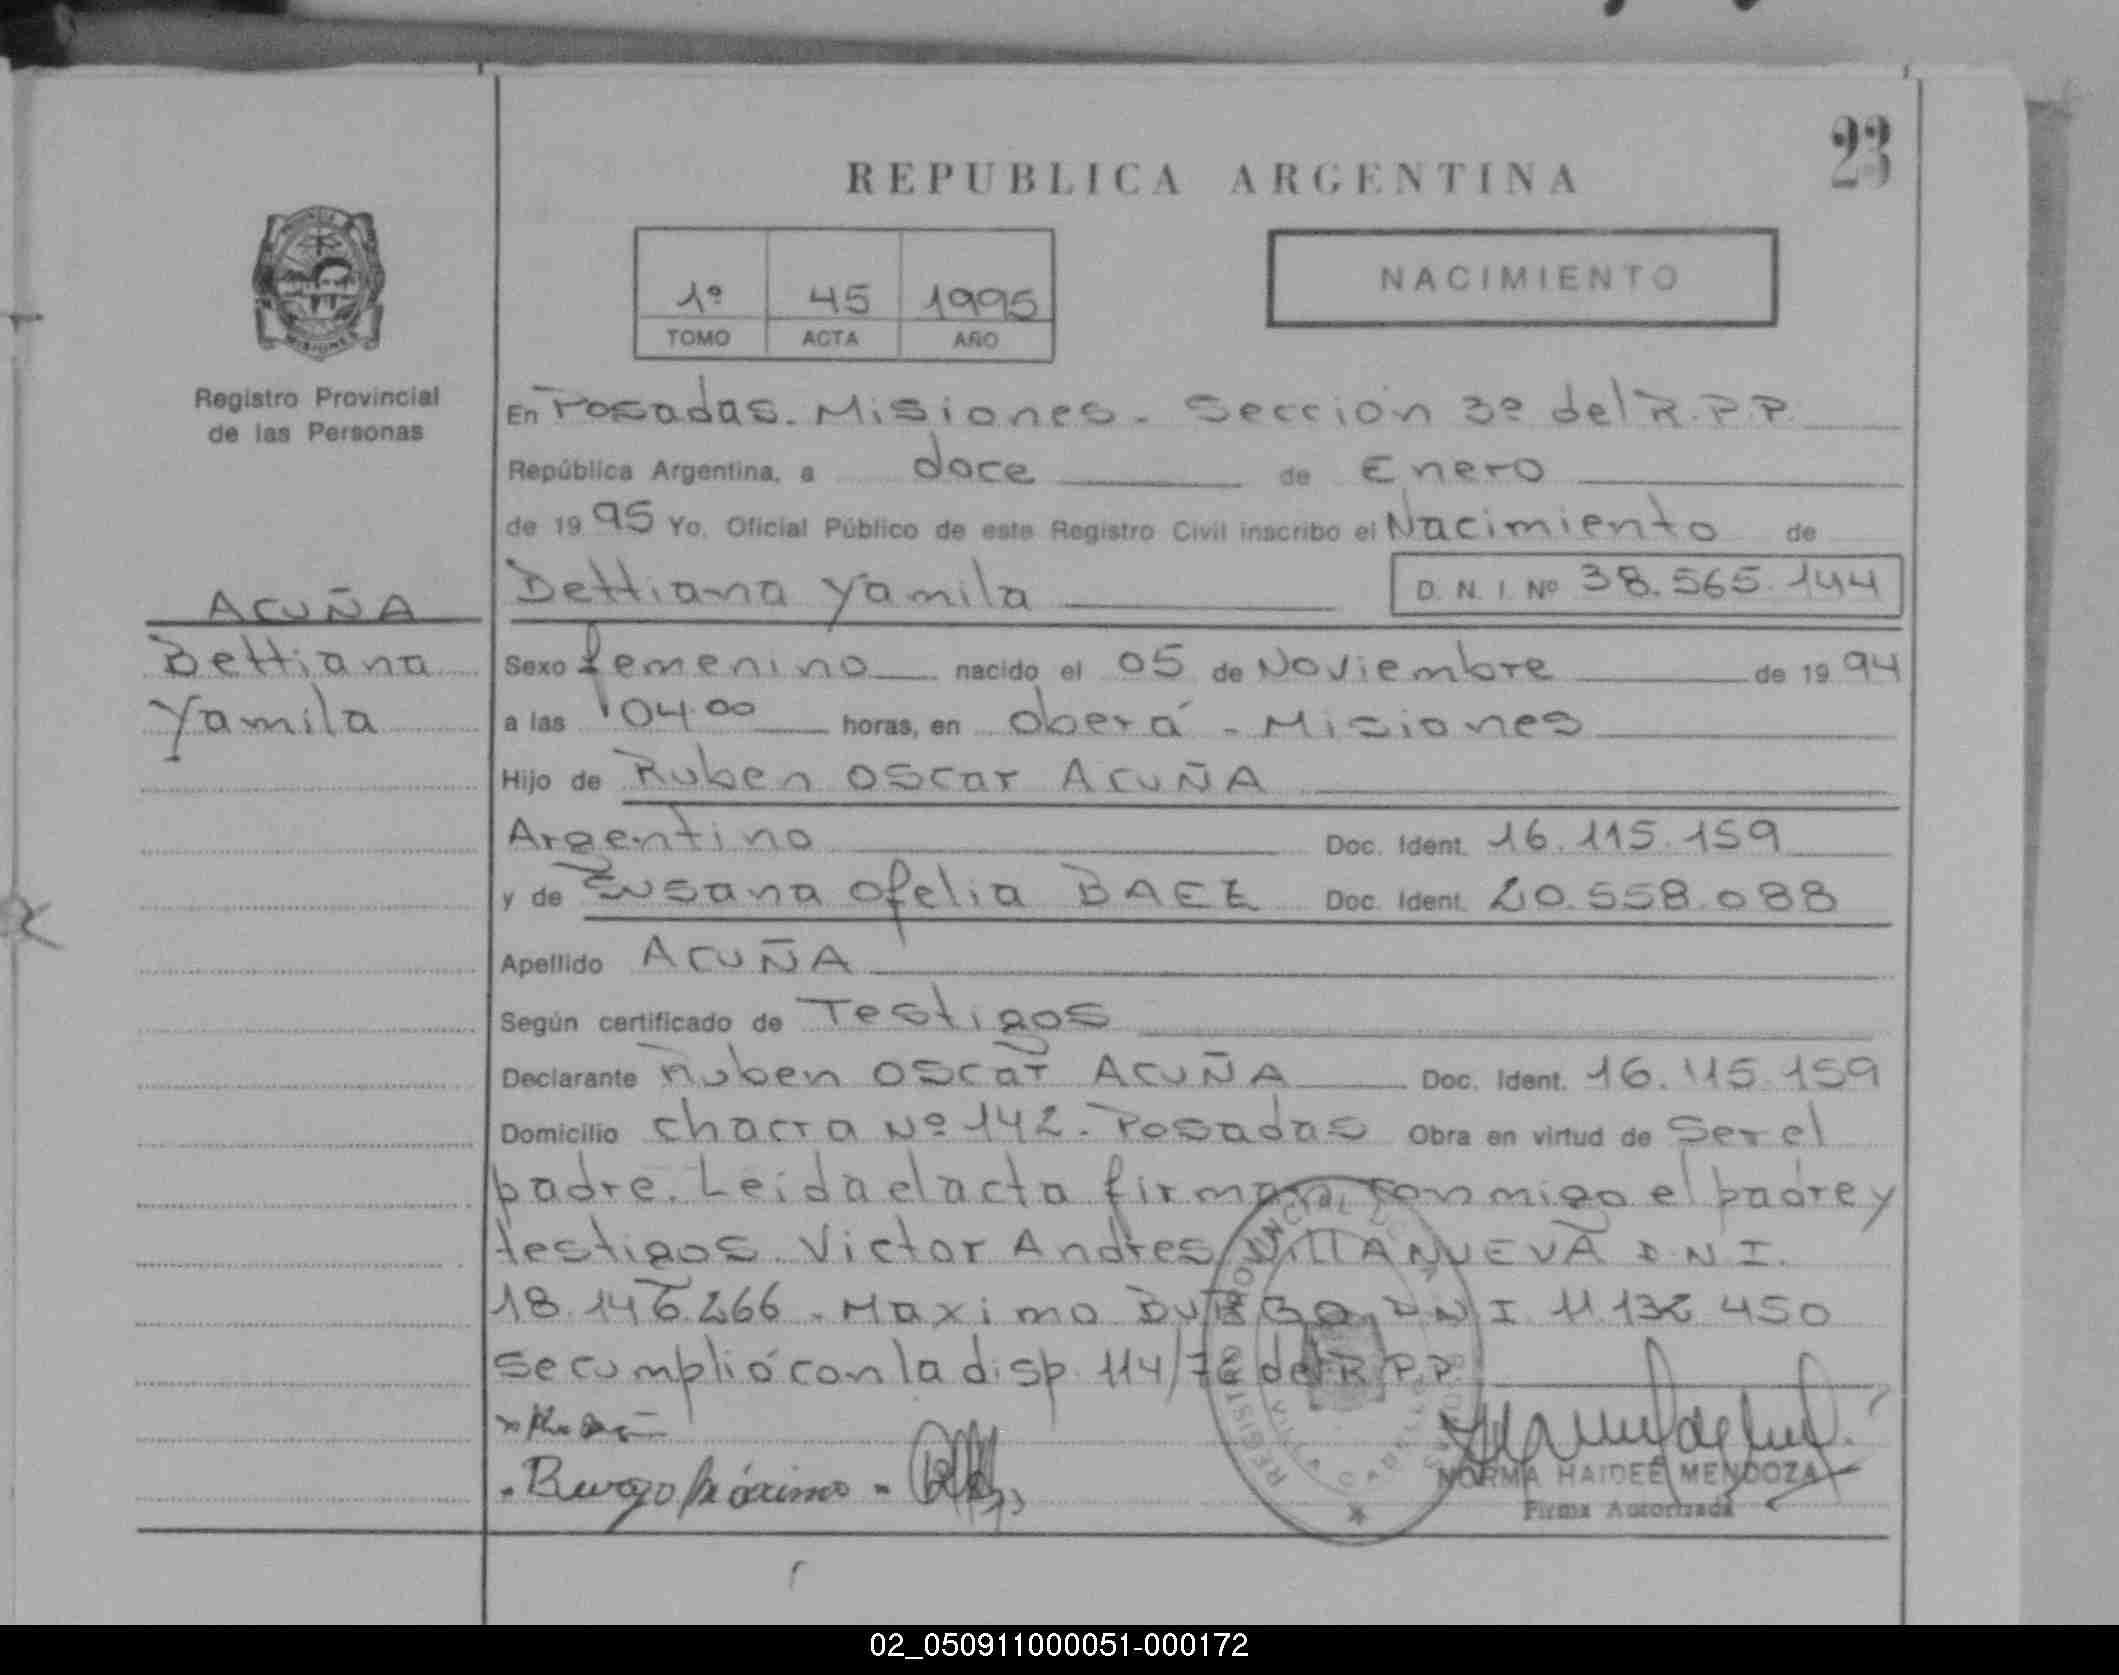 23
REPUBLICA ARGENTINA
1º 45 1995
TOMO ACTA AÑO
NACIMIENTO
Registro Provincial
de las Personas
En Posadas. Misiones. Sección 3º del R.P.P.
República Argentina, a doce de Enero
de 1995 Yo, Oficial Público de este Registro Civil inscribo el Nacimiento de
Bettiana Yamila D. N. I. Nº 38.565.144
ACUÑA
Bettiana
Yamila
Sexo femenino nacido el 05 de Noviembre de 1994
a las 04.00 horas, en Oberá - Misiones
Hijo de Ruben Oscar ACUÑA
Argentino Doc. Ident. 16.115.159
y de Susana Ofelia BAEZ Doc. Ident. 20.558.088
Apellido ACUÑA
Según certificado de Testigos
Declarante Ruben Oscar ACUÑA Doc. Ident. 16.115.159
Domicilio Chacra Nº 142. Posadas Obra en virtud de Ser el
padre. Leida el acta firman conmigo el padre y
testigos. Victor Andres VillANUEVA D.N.I.
18.146.266. Maximo BURGO, D.N.I. 11.132.450
se cumplió con la disp. 114/72 del R.P.P.
Burgo Máximo
NORMA HAIDEÉ MENDOZA
Firma Autorizada
REGISTRO PROVINCIAL
VILLA CABELLO
02_050911000051-000172